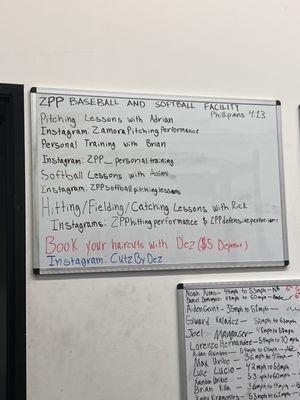 ZPP BASEBALL AND SOFTBALL FACILITY
Phillipians 4:13
Pitching Lessons with Adrian
Instagram: ZamoraPitchingPerformance
Personal Training with Brian
Instagram: ZPP_personaltraining
Softball Lessons with
Instagram: ZPPsoftballpitchinglessons
Hitting/Fielding/Catching Lessons with Rick
Instagrams: ZPPhittingperformance & ZPPdefensiveperformance
Book your haircuts with Dez ($5 Deposit)
Instagram: CutzByDez
Noah Rivas - 49mph to 53mph
Daniel Dominguez - 48mph to 50mph
Aiden Gant - 35mph to 51mph
Edward Valadez - 52mph to 62mph
Joel - 48mph to 58mph
Lorenzo Hernandez - 59mph to 70mph
Aiden Quintero
Max Uribe - 36 mph to 47mph
Luke Lucio - 42mph to 56mph
Xander Uribe - 53mph to 60mph
Brian Villa